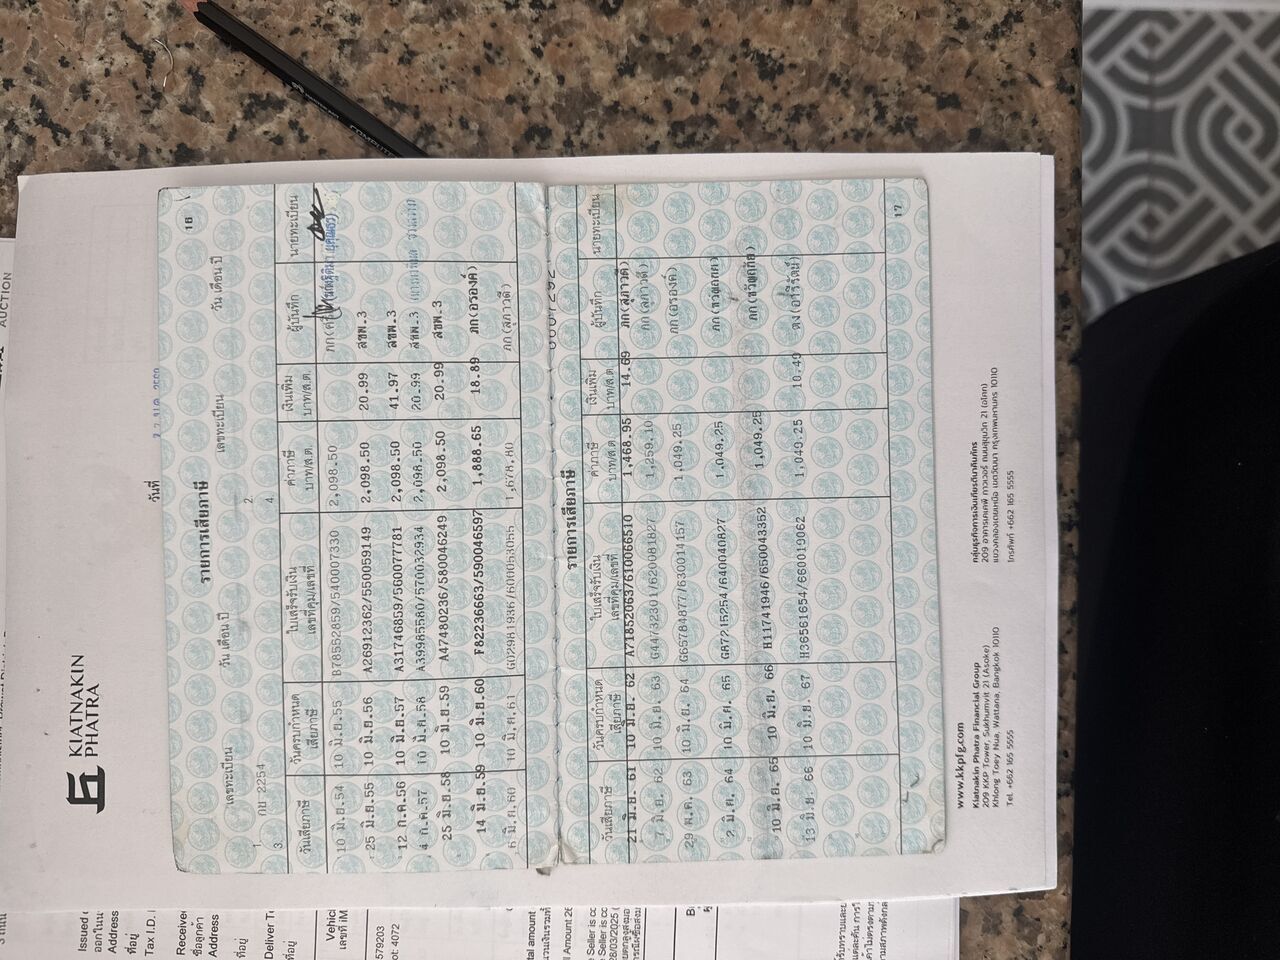 KIATNAKIN
PHATRA
AUCTION
วันที่
16
รายการเสียภาษี
เลขทะเบียน วัน เดือน ปี เลขทะเบียน วัน เดือน ปี
1. กบ 2254 2.
3. 4.
วันเสียภาษี วันครบกำหนดเสียภาษี ใบเสร็จรับเงิน เลขที่คุม/เลขที่ ค่าภาษี บาท/ส.ต. เงินเพิ่ม บาท/ส.ต. ผู้บันทึก นายทะเบียน
10 มิ.ย.54 10 มิ.ย.55 B78552859/540007330 2,098.50
25 มิ.ย.55 10 มิ.ย.56 A26912362/550059149 2,098.50 20.99 สขพ.3
12 ก.ค.56 10 มิ.ย.57 A31746859/560077781 2,098.50 41.97 สขพ.3
4 ก.ค.57 10 มิ.ย.58 A39985580/570032934 2,098.50 20.99 สขพ.3
25 มิ.ย.58 10 มิ.ย.59 A47480236/580046249 2,098.50 20.99 สขพ.3
14 มิ.ย.59 10 มิ.ย.60 F82236663/590046597 1,888.65 18.89 ภก(อรองค์)
6 มิ.ย.60 10 มิ.ย.61 G02981936/600053055 1,678.80 ภก(สุภาวดี)
รายการเสียภาษี
วันเสียภาษี วันครบกำหนดเสียภาษี ใบเสร็จรับเงิน เลขที่คุม/เลขที่ ค่าภาษี บาท/ส.ต. เงินเพิ่ม บาท/ส.ต. ผู้บันทึก นายทะเบียน
21 มิ.ย. 61 10 มิ.ย. 62 A71852063/610066510 1,468.95 14.69 ภก(สุภาวดี)
7 มิ.ย. 62 10 มิ.ย. 63 G44732301/620081827 1,259.10 ภก(สุภาวดี)
29 พ.ค. 63 10 มิ.ย. 64 G65784877/630014157 1,049.25 ภก(อรองค์)
2 มิ.ย. 64 10 มิ.ย. 65 G87215254/640040827 1,049.25
10 มิ.ย. 65 10 มิ.ย. 66 H11741946/650043352 1,049.25
13 มิ.ย 66 10 มิ.ย. 67 H36561654/660019062 1,049.25 10.49
17
www.kkpfg.com
Kiatnakin Phatra Financial Group
209 KKP Tower, Sukhumvit 21 (Asoke)
Khlong Toey Nua, Wattana, Bangkok 10110
Tel. +662 165 5555
กลุ่มธุรกิจการเงินเกียรตินาคินภัทร
209 อาคารเคเคพี ทาวเวอร์ ถนนสุขุมวิท 21 (อโศก)
แขวงคลองเตยเหนือ เขตวัฒนา กรุงเทพมหานคร 10110
โทรศัพท์ +662 165 5555
Issued
Address
ที่อยู่
Tax I.D.
Receive
ชื่อลูกค้า
Address
ที่อยู่
Deliver
ที่อยู่
Vehicl
เลขที่
579203
ot: 4072